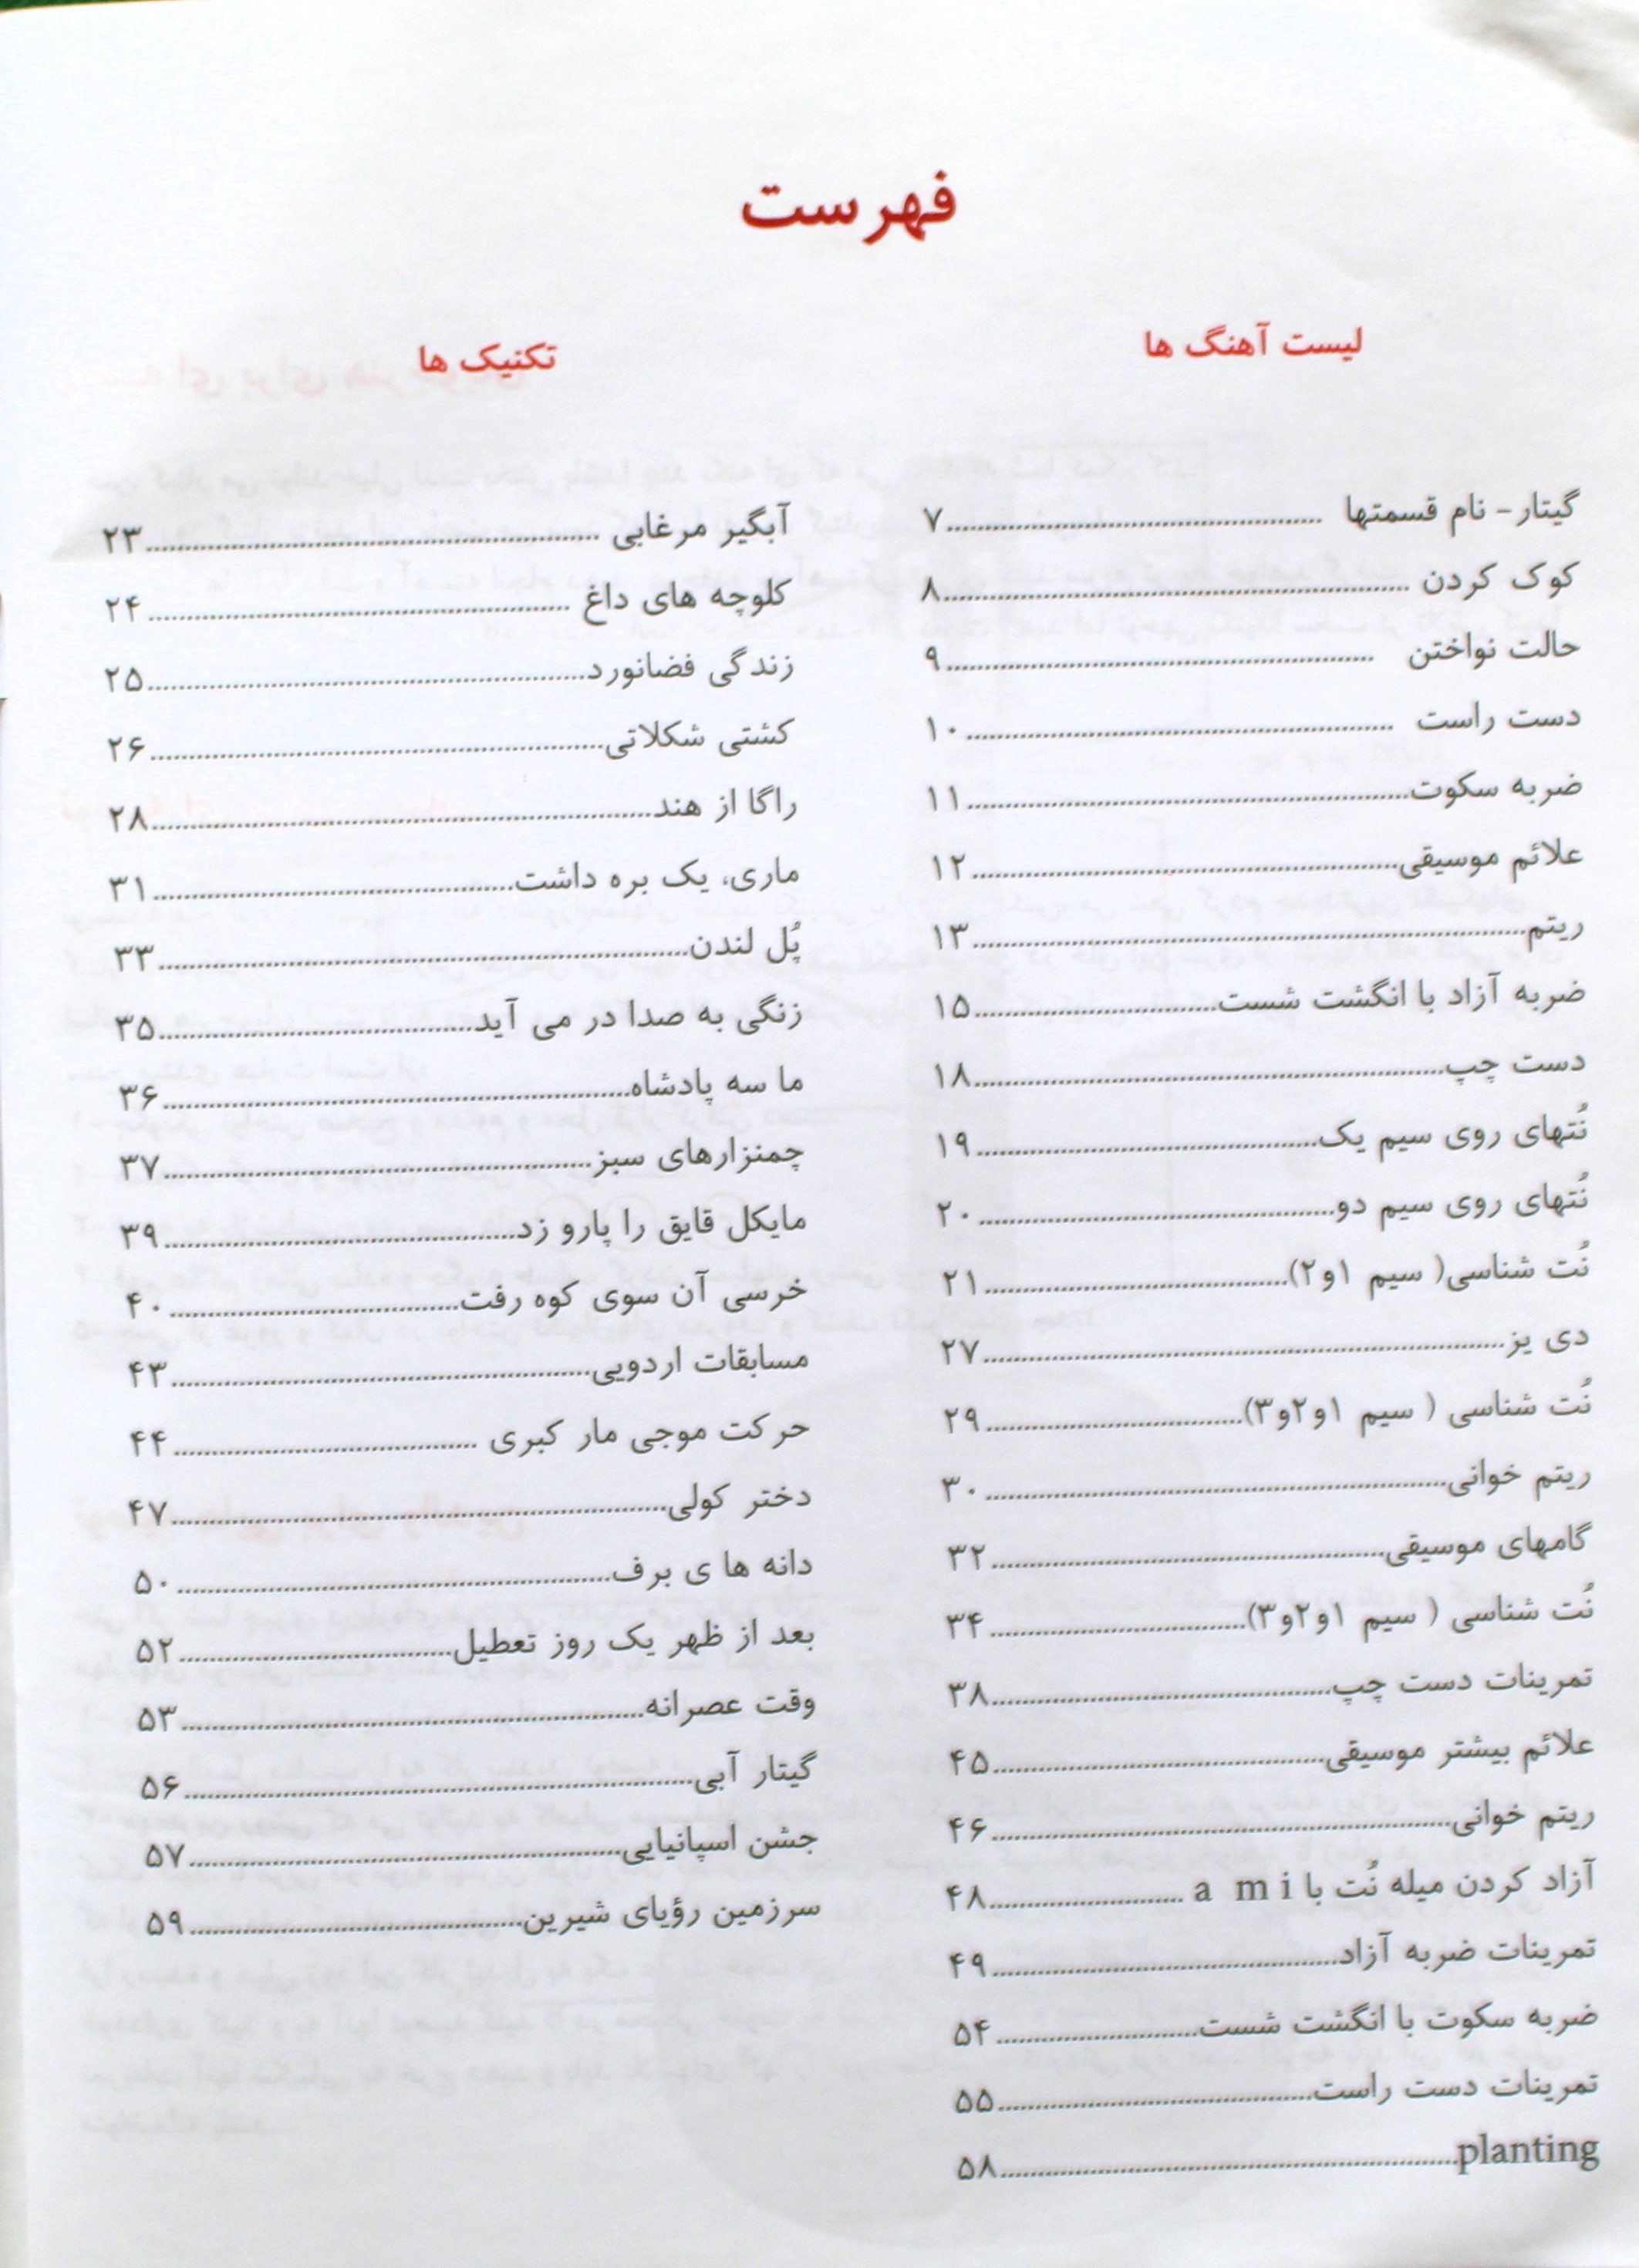 فهرست
لیست آهنگ ها
گیتار- نام قسمتها ........ ۷
کوک کردن ........ ۸
حالت نواختن ........ ۹
دست راست ........ ۱۰
ضربه سکوت ........ ۱۱
علائم موسیقی ........ ۱۲
ریتم ........ ۱۳
ضربه آزاد با انگشت شست ........ ۱۵
دست چپ ........ ۱۸
نُتهای روی سیم یک ........ ۱۹
نُتهای روی سیم دو ........ ۲۰
نُت شناسی( سیم ۱و۲) ........ ۲۱
دی یز ........ ۲۷
نُت شناسی ( سیم ۱و۲و۳) ........ ۲۹
ریتم خوانی ........ ۳۰
گامهای موسیقی ........ ۳۲
نُت شناسی ( سیم ۱و۲و۳) ........ ۳۴
تمرینات دست چپ ........ ۳۸
علائم بیشتر موسیقی ........ ۴۵
ریتم خوانی ........ ۴۶
آزاد کردن میله نُت با a m i ........ ۴۸
تمرینات ضربه آزاد ........ ۴۹
ضربه سکوت با انگشت شست ........ ۵۴
تمرینات دست راست ........ ۵۵
planting ........ ۵۸
تکنیک ها
آبگیر مرغابی ........ ۲۳
کلوچه های داغ ........ ۲۴
زندگی فضانورد ........ ۲۵
کشتی شکلاتی ........ ۲۶
راگا از هند ........ ۲۸
ماری، یک بره داشت ........ ۳۱
پُل لندن ........ ۳۳
زنگی به صدا در می آید ........ ۳۵
ما سه پادشاه ........ ۳۶
چمنزارهای سبز ........ ۳۷
مایکل قایق را پارو زد ........ ۳۹
خرسی آن سوی کوه رفت ........ ۴۰
مسابقات اردویی ........ ۴۳
حرکت موجی مار کبری ........ ۴۴
دختر کولی ........ ۴۷
دانه ها ی برف ........ ۵۰
بعد از ظهر یک روز تعطیل ........ ۵۲
وقت عصرانه ........ ۵۳
گیتار آبی ........ ۵۶
جشن اسپانیایی ........ ۵۷
سرزمین رؤیای شیرین ........ ۵۹